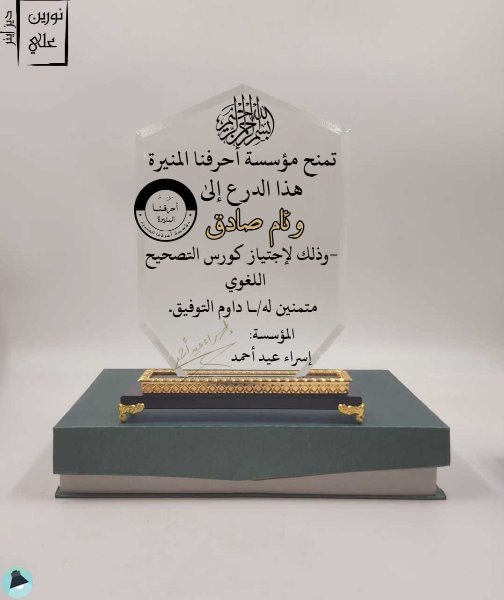 نورين
علي
ديزاينر
بسم الله الرحمن الرحيم
تمنح مؤسسة أحرفنا المنيرة
هذا الدرع إلىٰ
أحرفنا
المنيرة
وئام صادق
-وذلك لإجتياز كورس التصحيح
اللغوي
متمنين له/ـا داوم التوفيق.
المؤسسة:
إسراء عيد أحمد
إسراء عيد أحمد